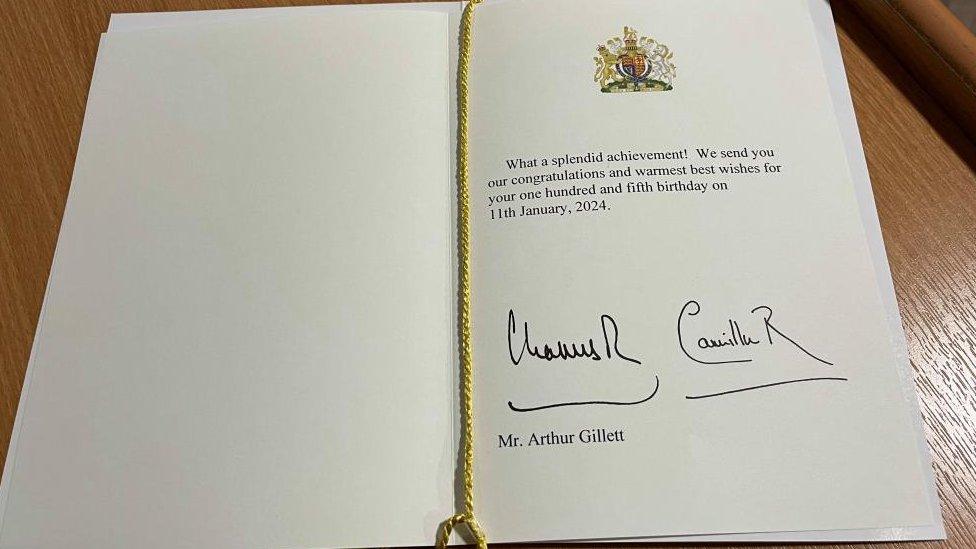 What a splendid achievement! We send you
our congratulations and warmest best wishes for
your one hundred and fifth birthday on
11th January, 2024.
Charles R
Camilla R
Mr. Arthur Gillett